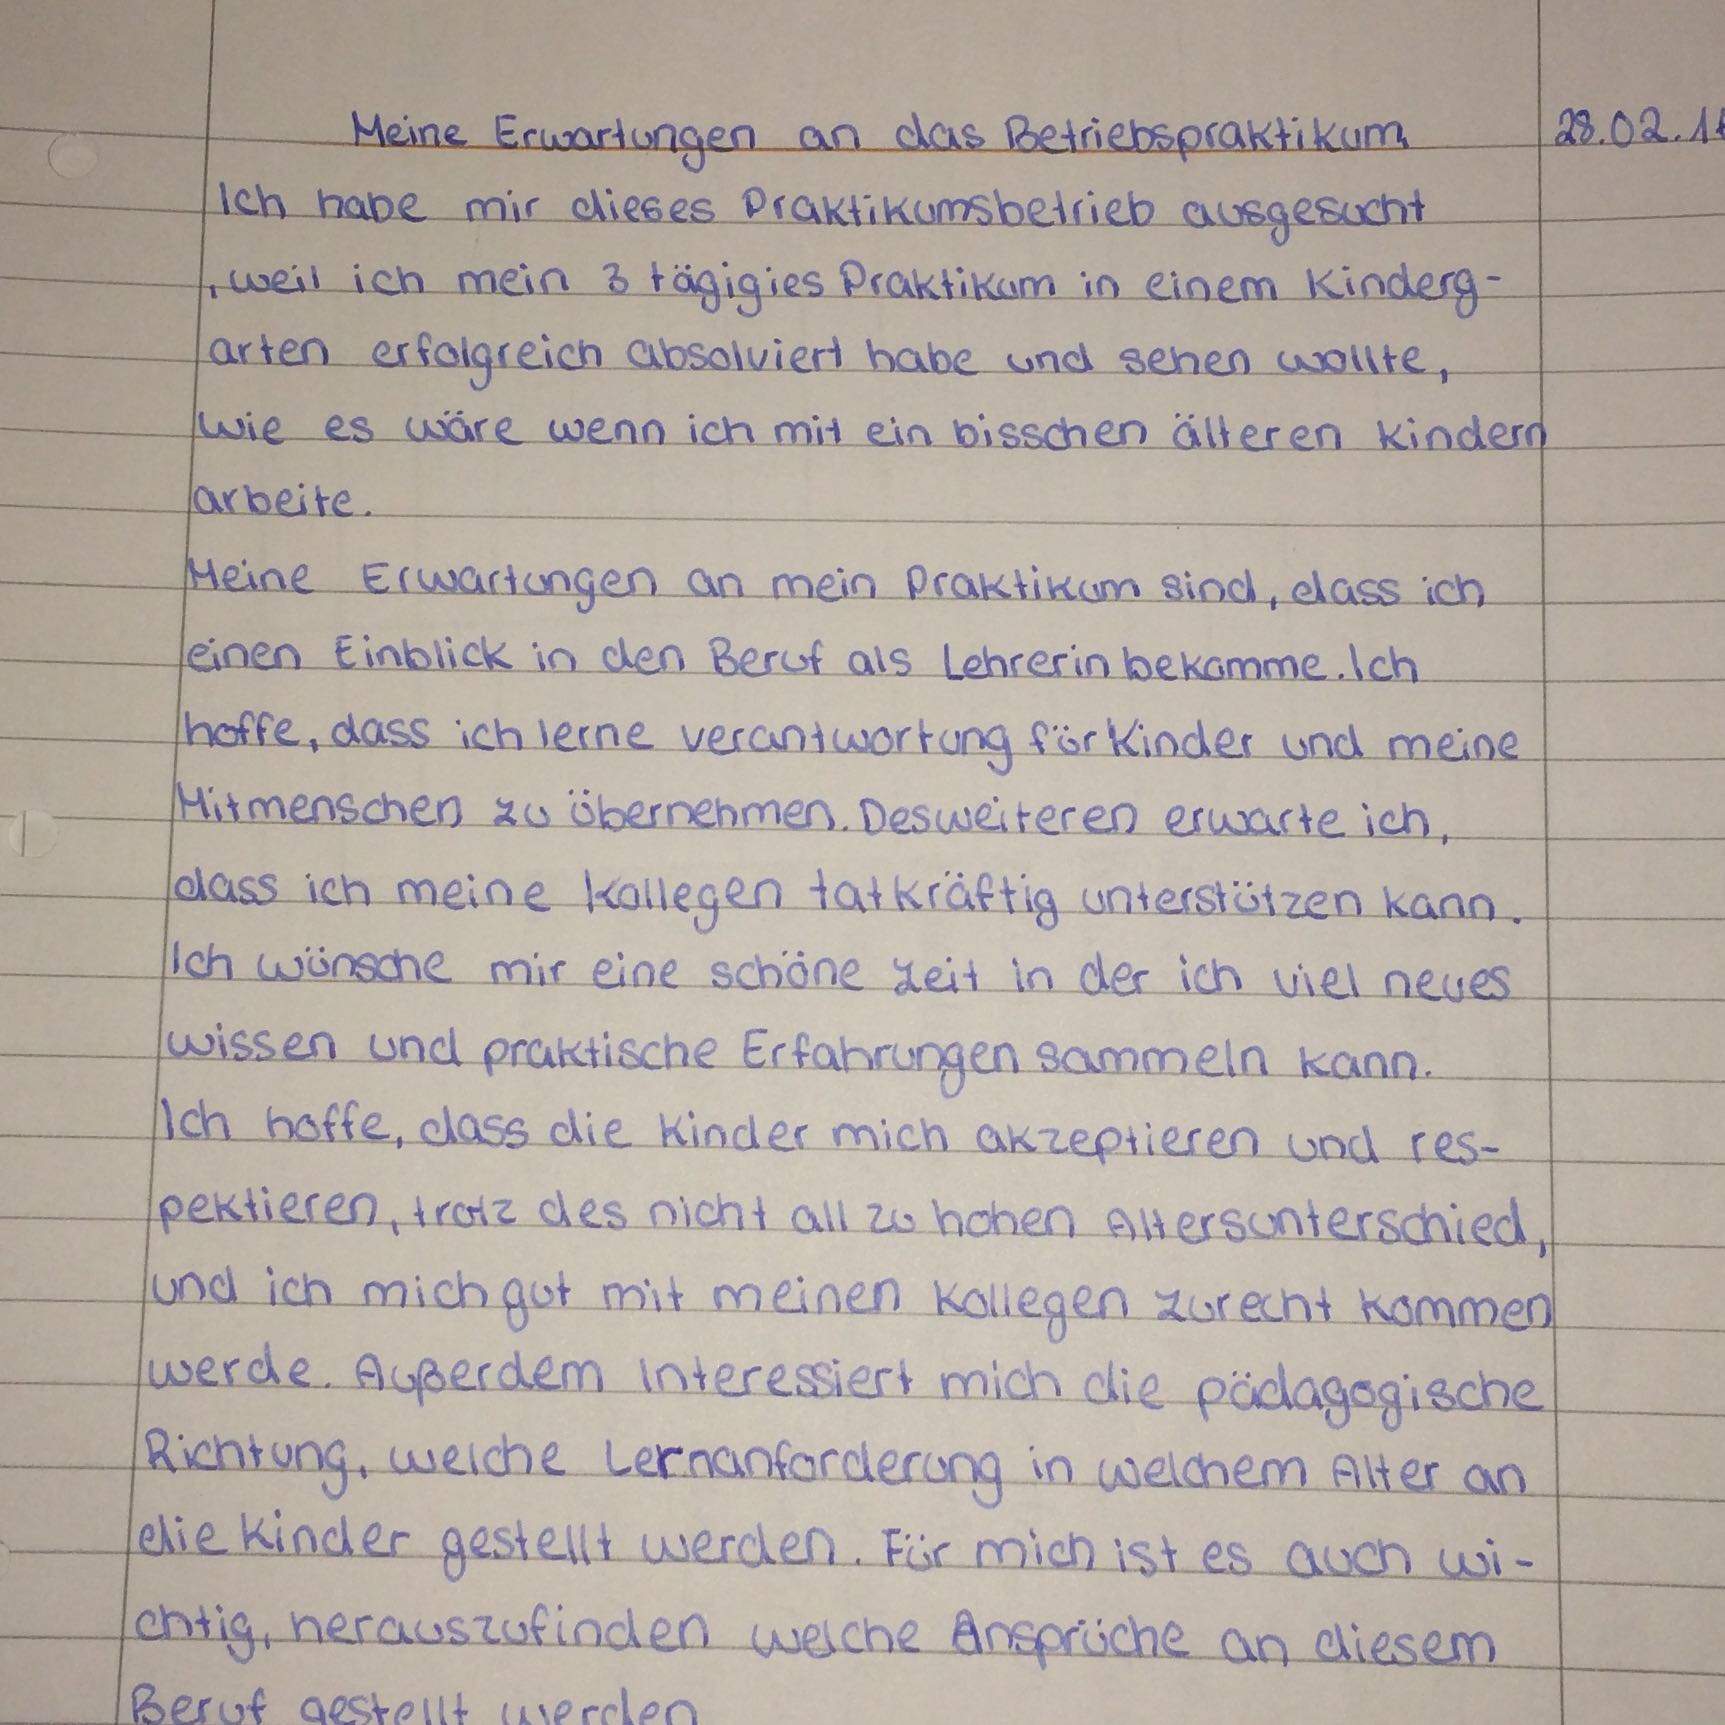 Meine Erwartungen an das Betriebspraktikum 28.02.1
Ich habe mir dieses Praktikumsbetrieb ausgesucht
, weil ich mein 3 tägigies Praktikum in einem Kinderg-
arten erfolgreich absolviert habe und sehen wollte,
wie es wäre wenn ich mit ein bisschen älteren Kindern
arbeite.
Meine Erwartungen an mein Praktikum sind, dass ich
einen Einblick in den Beruf als Lehrerin bekomme. Ich
hoffe, dass ich lerne verantwortung für Kinder und meine
Mitmenschen zu übernehmen. Desweiteren erwarte ich,
dass ich meine Kollegen tatkräftig unterstützen kann.
Ich wünsche mir eine schöne Zeit in der ich viel neues
wissen und praktische Erfahrungen sammeln kann.
Ich hoffe, dass die Kinder mich akzeptieren und res-
pektieren, trotz des nicht all zu hohen Altersunterschied,
und ich mich gut mit meinen Kollegen zurecht kommen
werde. Außerdem interessiert mich die pädagogische
Richtung, welche Lernanforderung in welchem Alter an
die Kinder gestellt werden. Für mich ist es auch wi-
chtig, herauszufinden welche Ansprüche an diesem
Beruf gestellt werden